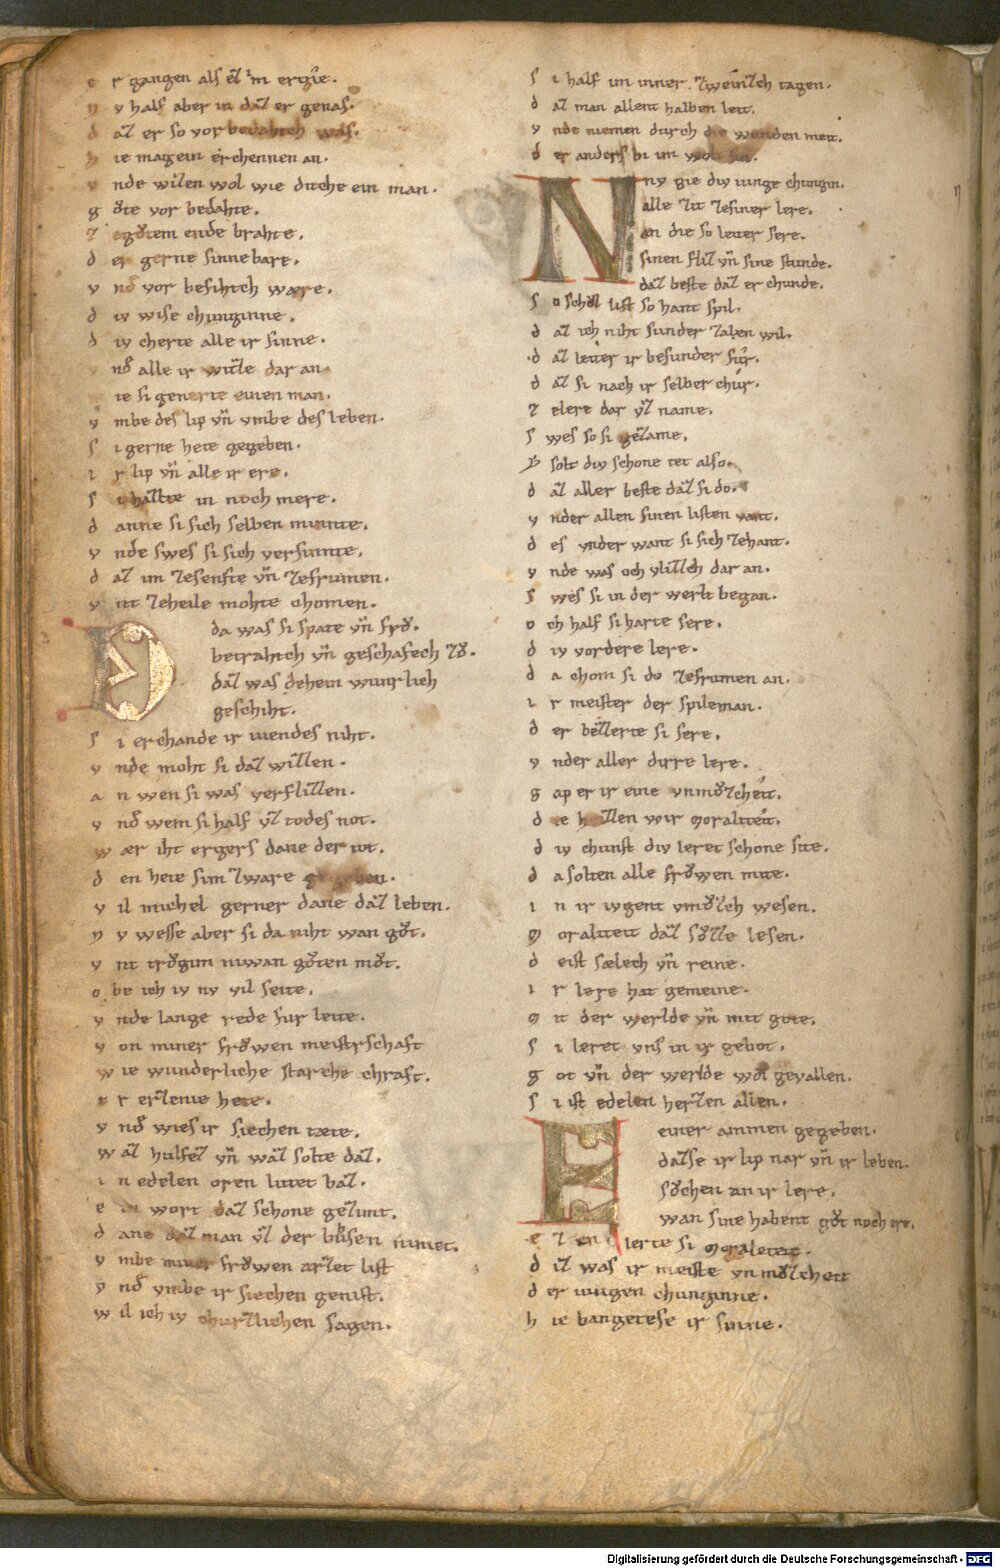 e r gangen als eʒ im ergie.
n v half aber in daʒ er genas.
d aʒ er so vor bedahtech was.
h ie magein erchennen an.
v nde wiʒen wol wie diche ein man.
g uͦte vor bedahte.
ʒ eguͦtem ende brahte.
d er gerne sinnebare.
v nd vor besihtech wære.
d iv wise chunginne.
d iv cherte alle ir sinne.
v nd alle ir witʒe dar an.
w ie si generte einen man.
v mbe des lip vn̄ vmbe des leben.
s i gerne hete gegeben.
i r lip vn̄ alle ir ere.
s i haʒte in noch mere.
d anne si sich selben minnte.
v nde swes si sich versinnte.
d aʒ im ʒesenfte vn̄ ʒefrumen.
v nt ʒeheile mohte chomen.
D da was si spate vn̄ fruͦ.
betrahtch vn̄ geschafech ʒuͦ.
daʒ was dehein wunrlich
geschiht.
s i erchande ir niendes niht.
v nde moht si daʒ wiʒʒen.
a n wen si was verfliʒʒen.
v nd wem si half vʒ todes not.
w ær iht ergers dane der tot.
d en hete sim ʒware gegeben.
v il michel gerner dane daʒ leben.
n v wesse aber si da niht wan guͦt.
v nt truͦgim niwan guͦten muͦt.
o be ich iv nv vil seite.
v nde lange rede fur leite.
v on miner fruͦwen meistrschaft
w ie wunderliche starche chraft.
e r erʒenie hete.
v nd wies ir siechen tæte.
w aʒ hulfeʒ vn̄ waʒ solte daʒ.
i n edelen oren lutet baʒ.
e in wort daʒ schone geʒimt.
d ane daʒ man vʒ der buhsen nimet.
v mbe miner fruͦwen arʒet list
v nd vmbe ir siechen genist.
w il ich iv churʒlichen sagen.
s i half im inner ʒweinʒech tagen.
d aʒ man allent halben leit.
v nde niemen durch die wunden meit.
d er anders bi im wolt sin.
N nv gie div iunge chungin.
alle ʒit ʒesiner lere.
an die so leiter sere.
sinen fliʒ vn̄ sine stunde.
daʒ beste daʒ er chunde.
s o schuͦl list so hant spil.
d aʒ ich niht sunder ʒalen wil.
d aʒ leiter ir besunder fur.
d aʒ si nach ir selber chur.
ʒ elere dar vʒ name.
s wes so si geʒame.
Y solt div schone tet also.
d aʒ aller beste daʒ si do.
v nder allen sinen listen vant.
d es vnder want si sich ʒehant.
v nde was och vliʒʒch dar an.
s wes si in der werlt began.
o ch half si harte sere.
d iv vordere lere.
d a chom si do ʒefrumen an.
i r meister der spileman.
d er beʒʒerte si sere.
v nder aller dirre lere.
g ap er ir eine vnmuͦʒcheit.
d ie heiʒʒen wir moraliteit.
d iv chunst div leret schone site.
d a solten alle fruͦwen mite.
i n ir ivgent vnmuͦʒch wesen.
m oraliteit daʒ suͦʒʒe lesen.
d eist sælech vn̄ reine.
i r lere hat gemeine.
m it der werlde vn̄ mit gote.
s i leret vns in ir gebot.
g ot vn̄ der werlde wol gevallen.
s i ist edelen herʒen allen.
E einer ammen gegeben.
daʒse ir lip nar vn̄ ir leben.
suͦchen an ir lere.
wan sine habent guͦt noch ere.
e ʒ en lerte si moraleteit.
d iʒ was ir meiste vnmuͦʒcheit
d er iungen chunginne.
h ie bangetese ir sinne.
Digitalisierung gefördert durch die Deutsche Forschungsgemeinschaft - DFG